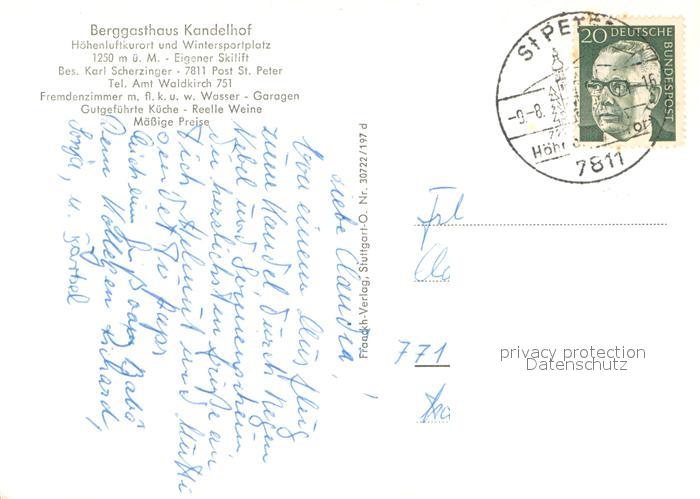 Berggasthaus Kandelhof
Höhenluftkurort und Wintersportplatz
1250 m ü. M. - Eigener Skilift
Bes. Karl Scherzinger - 7811 Post St. Peter
Tel. Amt Waldkirch 751
Fremdenzimmer m. fl. k. u. w. Wasser - Garagen
Gutgeführte Küche - Reelle Weine
Mäßige Preise
Liebe Claudia,
Von einem Ausflug
zum Kandel durch Regen
Nebel und Sonnenschein,
die herzlichsten Grüße an
Dich Helmut und Mutti
sendet Dir Paps
Auch ein Gruß von
Dem Kollegen Richard,
Sonja, u.
Franckh-Verlag, Stuttgart-O. Nr. 30722/197 d
St PETER
-9.-8.
16
Höh
ort
7811
20 DEUTSCHE
BUNDESPOST
Frl
771
privacy protection
Datenschutz